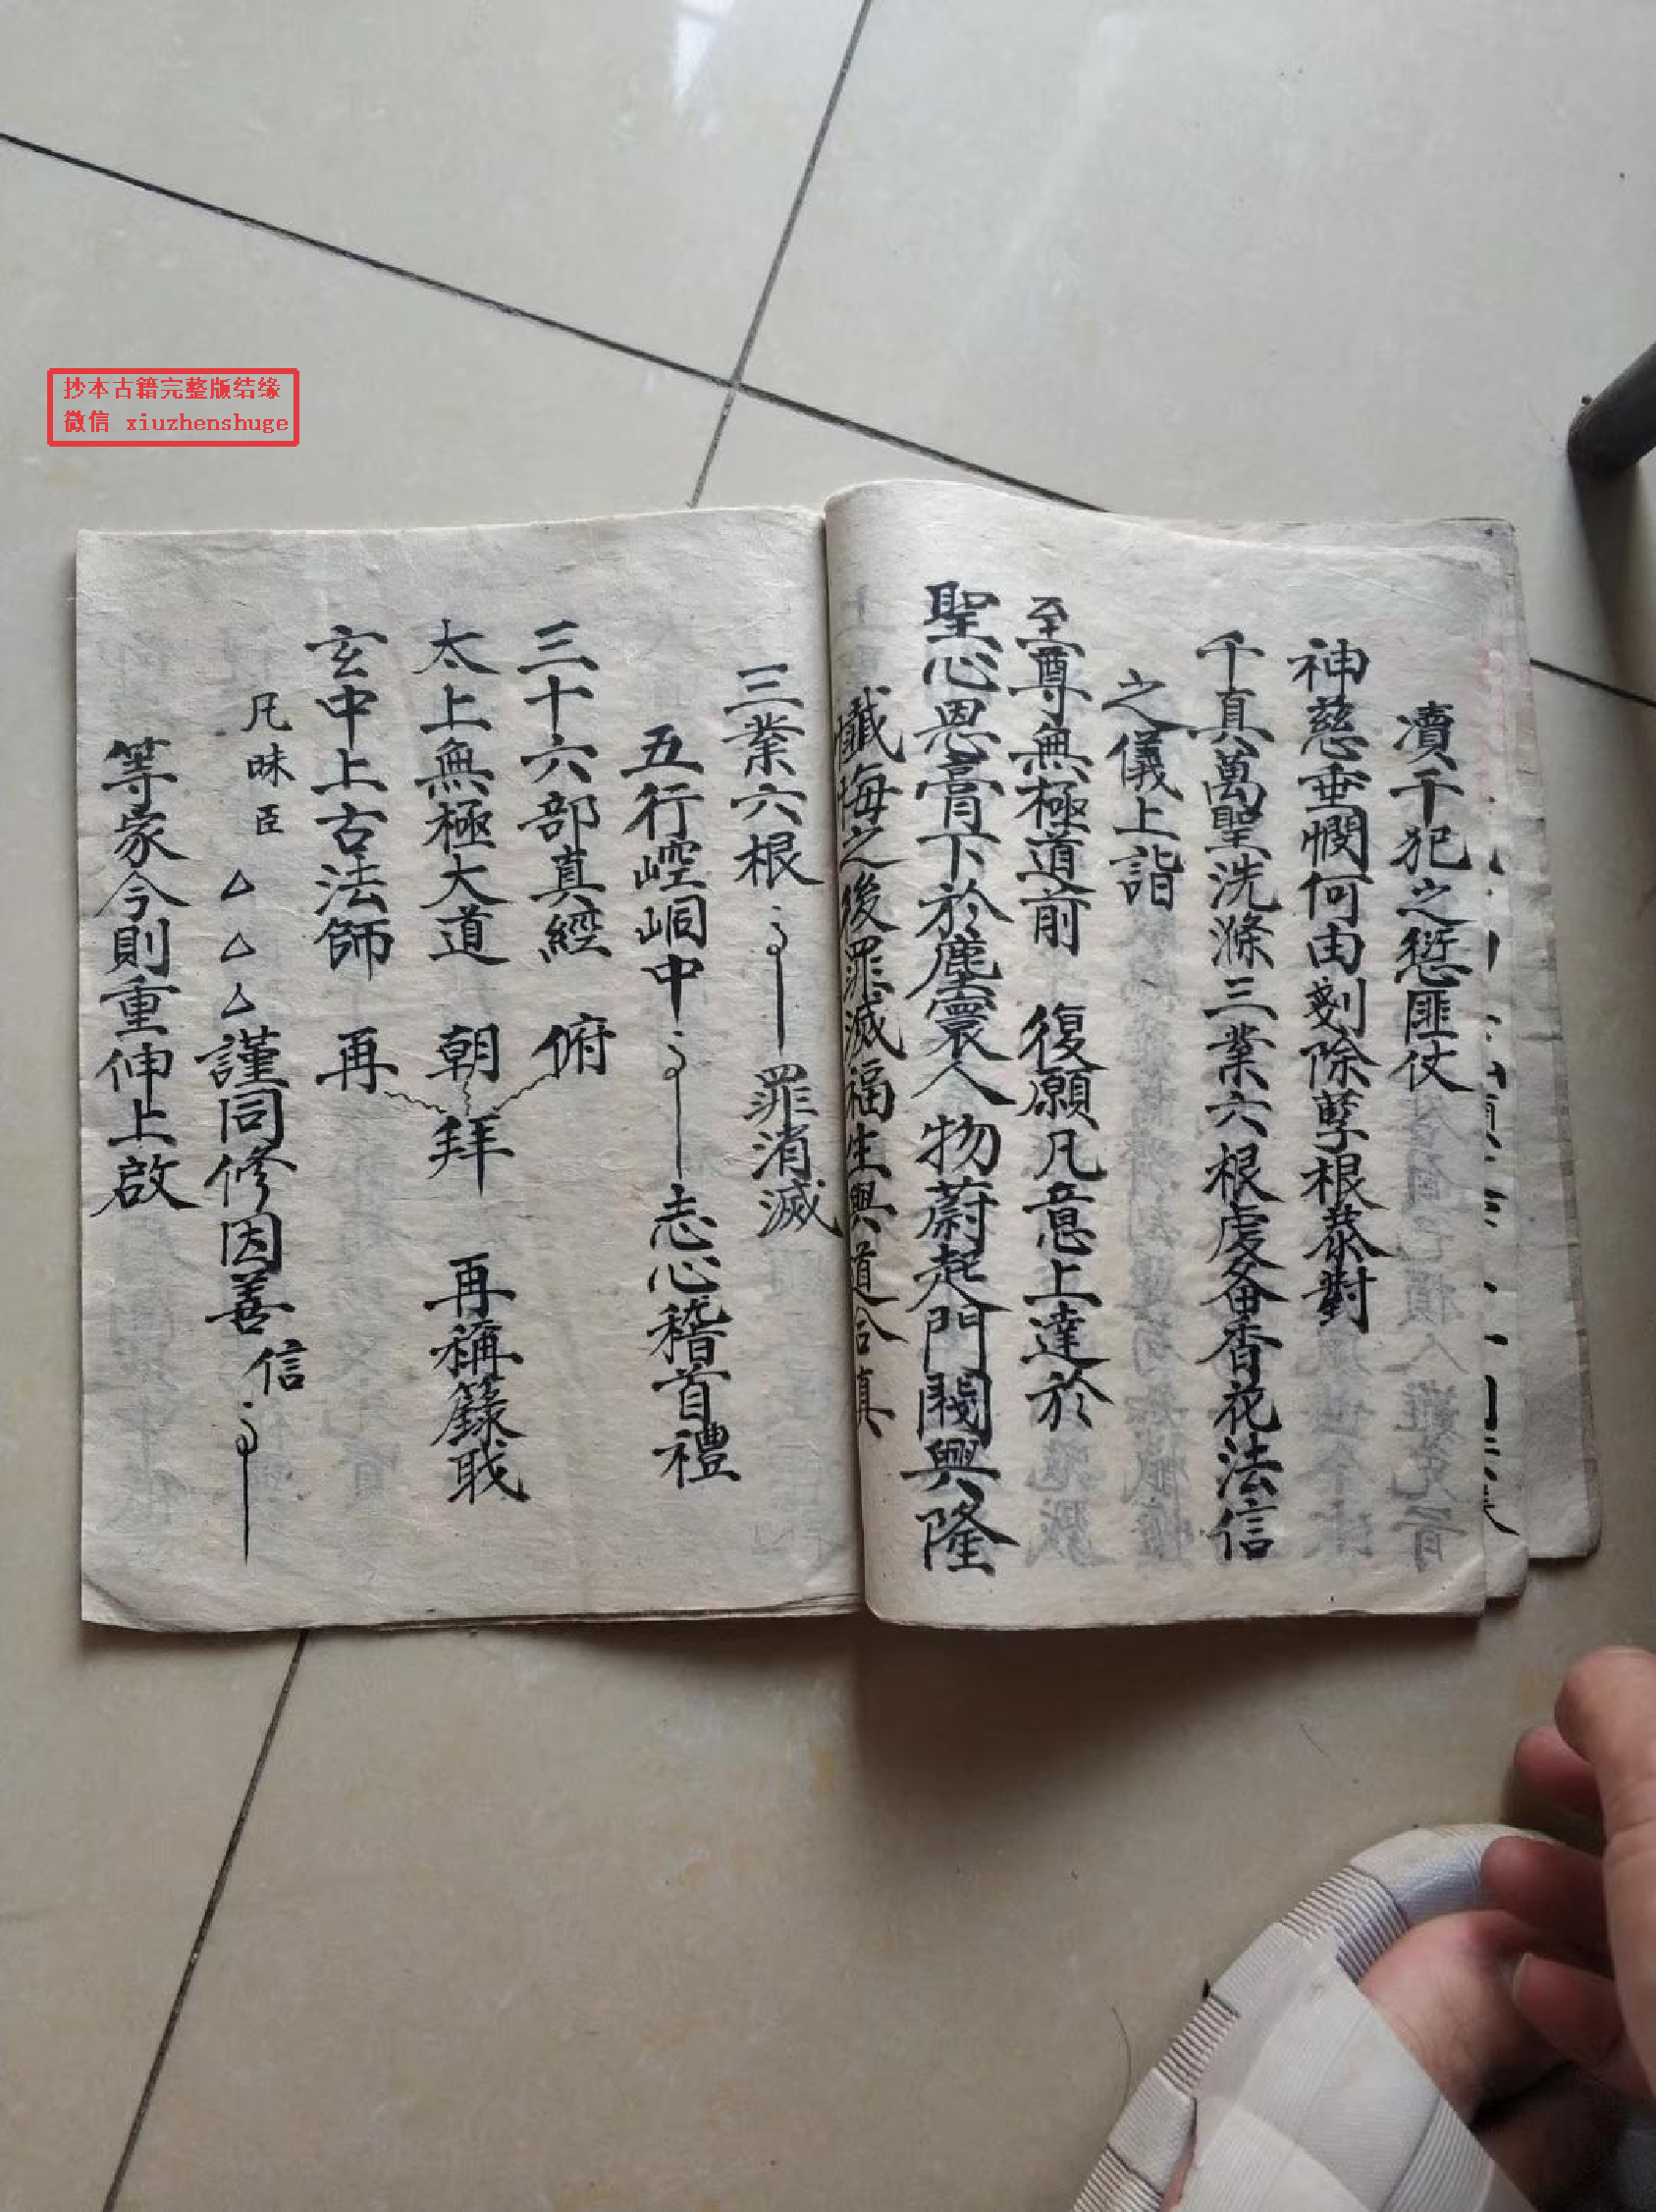 抄本古籍完整版结缘
微信 xiuzhenshuge
瀆干犯之愆匪仗
神慈垂憫何由剗除孽根恭對
千真萬聖洗滌三業六根虔备香花法信
之儀上詣
至尊無極道前 復願凡意上達於
聖心恩膏下於塵寰人物蔚起門閥興隆
懺悔之後罪滅福生興道合真
三業六根 罪消滅
五行崆峒中 志心稽首禮
三十六部真經 俯
太上無極大道 朝拜 再稱籙戝
玄中上古法師 再
凡昧臣 △△△謹同修因善信
等家今則重伸上啟